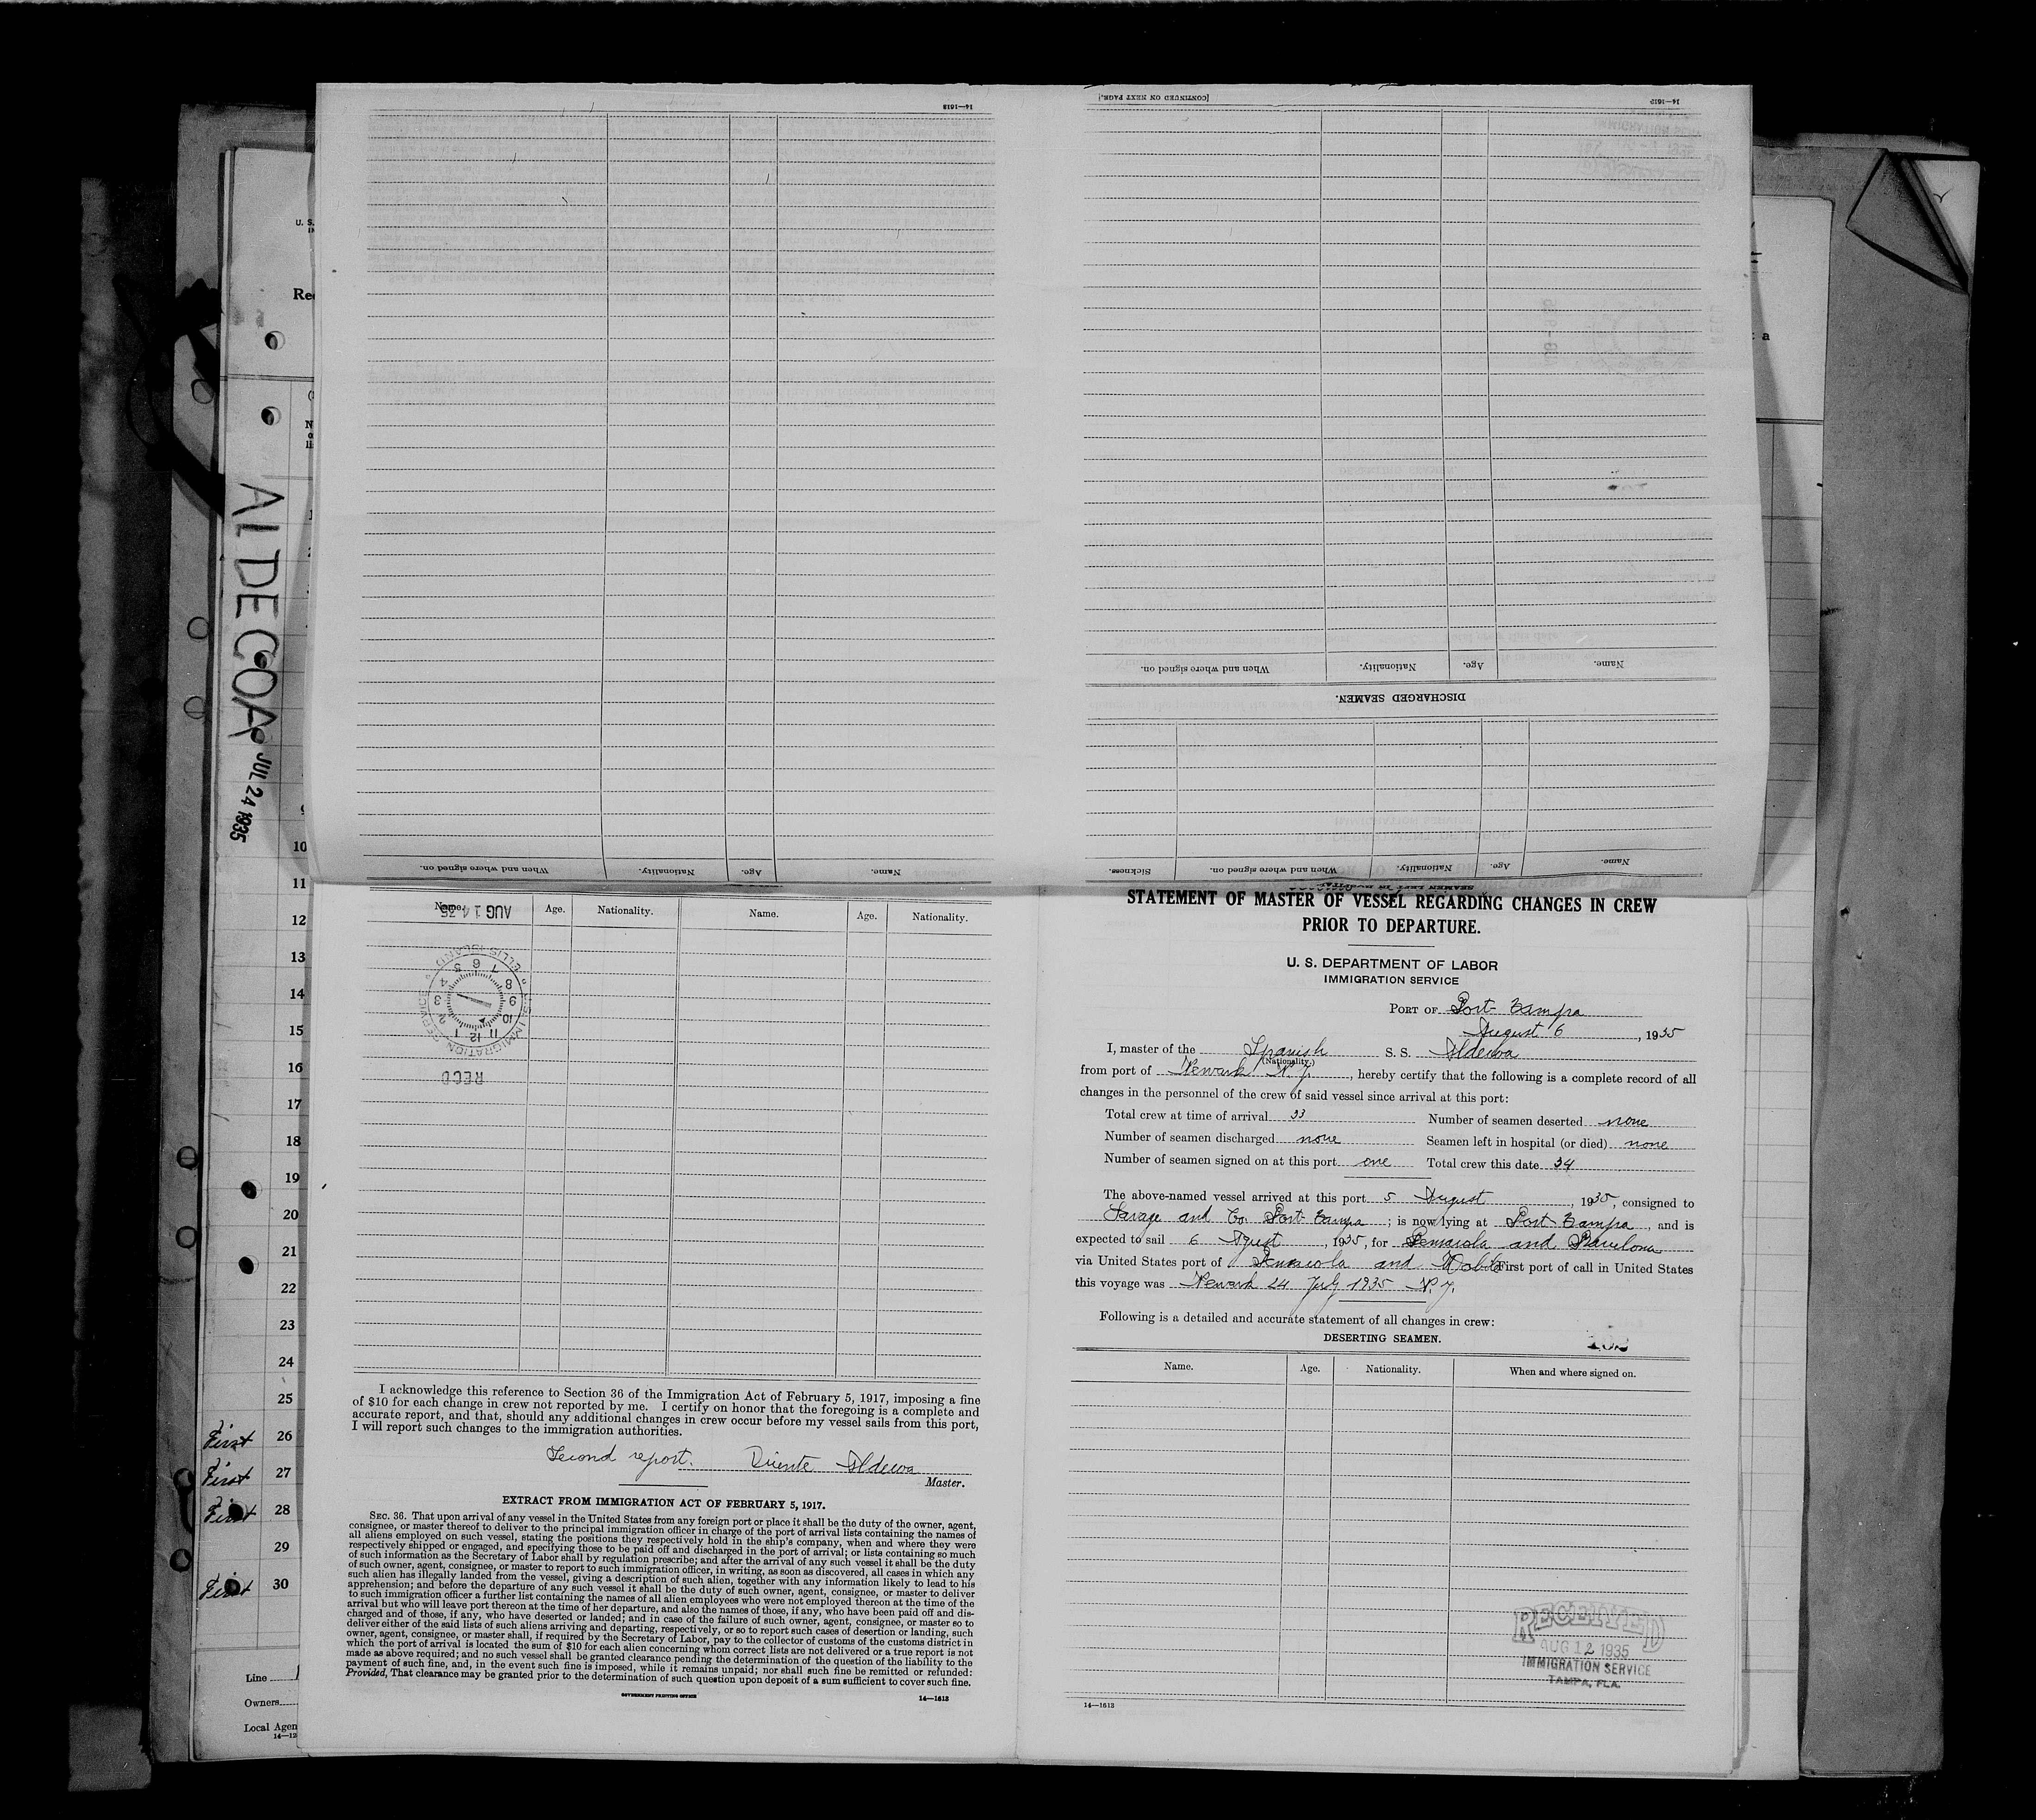 14—1613
[CONTINUED ON NEXT PAGE.]
14—1613
Name. Age. Nationality. When and where signed on.
DISCHARGED SEAMEN.
Name. Age. Nationality. When and where signed on. Sickness.
Name. Age. Nationality. When and where signed on.
SEAMEN LEFT IN HOSPITAL
U. S.
Rec
ALDECOA
JUL 24 1935
10
11
12
13
14
15
16
17
18
19
20
21
22
23
24
25
First 26
First 27
First 28
29
First 30
Line
Owners
Local Agen
14—12
Name. Age. Nationality. Name. Age. Nationality.
AUG 14 35
U.S. IMMIGRATION SERVICE ELLIS ISLAND
12 1 2 3 4 5 6 7 8 9 10 11
RECD
I acknowledge this reference to Section 36 of the Immigration Act of February 5, 1917, imposing a fine
of $10 for each change in crew not reported by me. I certify on honor that the foregoing is a complete and
accurate report, and that, should any additional changes in crew occur before my vessel sails from this port,
I will report such changes to the immigration authorities.
Second report.
Master.
EXTRACT FROM IMMIGRATION ACT OF FEBRUARY 5, 1917.
SEC. 36. That upon arrival of any vessel in the United States from any foreign port or place it shall be the duty of the owner, agent,
consignee, or master thereof to deliver to the principal immigration officer in charge of the port of arrival lists containing the names of
all aliens employed on such vessel, stating the positions they respectively hold in the ship's company, when and where they were
respectively shipped or engaged, and specifying those to be paid off and discharged in the port of arrival; or lists containing so much
of such information as the Secretary of Labor shall by regulation prescribe; and after the arrival of any such vessel it shall be the duty
of such owner, agent, consignee, or master to report to such immigration officer, in writing, as soon as discovered, all cases in which any
such alien has illegally landed from the vessel, giving a description of such alien, together with any information likely to lead to his
apprehension; and before the departure of any such vessel it shall be the duty of such owner, agent, consignee, or master to deliver
to such immigration officer a further list containing the names of all alien employees who were not employed thereon at the time of the
arrival but who will leave port thereon at the time of her departure, and also the names of those, if any, who have been paid off and dis-
charged and of those, if any, who have deserted or landed; and in case of the failure of such owner, agent, consignee, or master so to
deliver either of the said lists of such aliens arriving and departing, respectively, or so to report such cases of desertion or landing, such
owner, agent, consignee, or master shall, if required by the Secretary of Labor, pay to the collector of customs of the customs district in
which the port of arrival is located the sum of $10 for each alien concerning whom correct lists are not delivered or a true report is not
made as above required; and no such vessel shall be granted clearance pending the determination of the question of the liability to the
payment of such fine, and, in the event such fine is imposed, while it remains unpaid; nor shall such fine be remitted or refunded:
Provided, That clearance may be granted prior to the determination of such question upon deposit of a sum sufficient to cover such fine.
GOVERNMENT PRINTING OFFICE 14—1613
STATEMENT OF MASTER OF VESSEL REGARDING CHANGES IN CREW
PRIOR TO DEPARTURE.
U. S. DEPARTMENT OF LABOR
IMMIGRATION SERVICE
PORT OF Port Tampa
August 6, 1935
I, master of the Spanish S. S. Aldecoa
(Nationality.)
from port of Newark N. J., hereby certify that the following is a complete record of all
changes in the personnel of the crew of said vessel since arrival at this port:
Total crew at time of arrival 33 Number of seamen deserted none
Number of seamen discharged none Seamen left in hospital (or died) none
Number of seamen signed on at this port one Total crew this date 34
The above-named vessel arrived at this port 5 August, 1935, consigned to
Savage and Co. Port Tampa; is now lying at Port Tampa, and is
expected to sail 6 Agust, 1935, for Pensacola and Barcelona
via United States port of Pensacola and Mobile First port of call in United States
this voyage was Newark 24 July 1935 N. J.
Following is a detailed and accurate statement of all changes in crew:
DESERTING SEAMEN.
Name. Age. Nationality. When and where signed on.
RECEIVED
AUG 12 1935
IMMIGRATION SERVICE
TAMPA, FLA.
14—1613